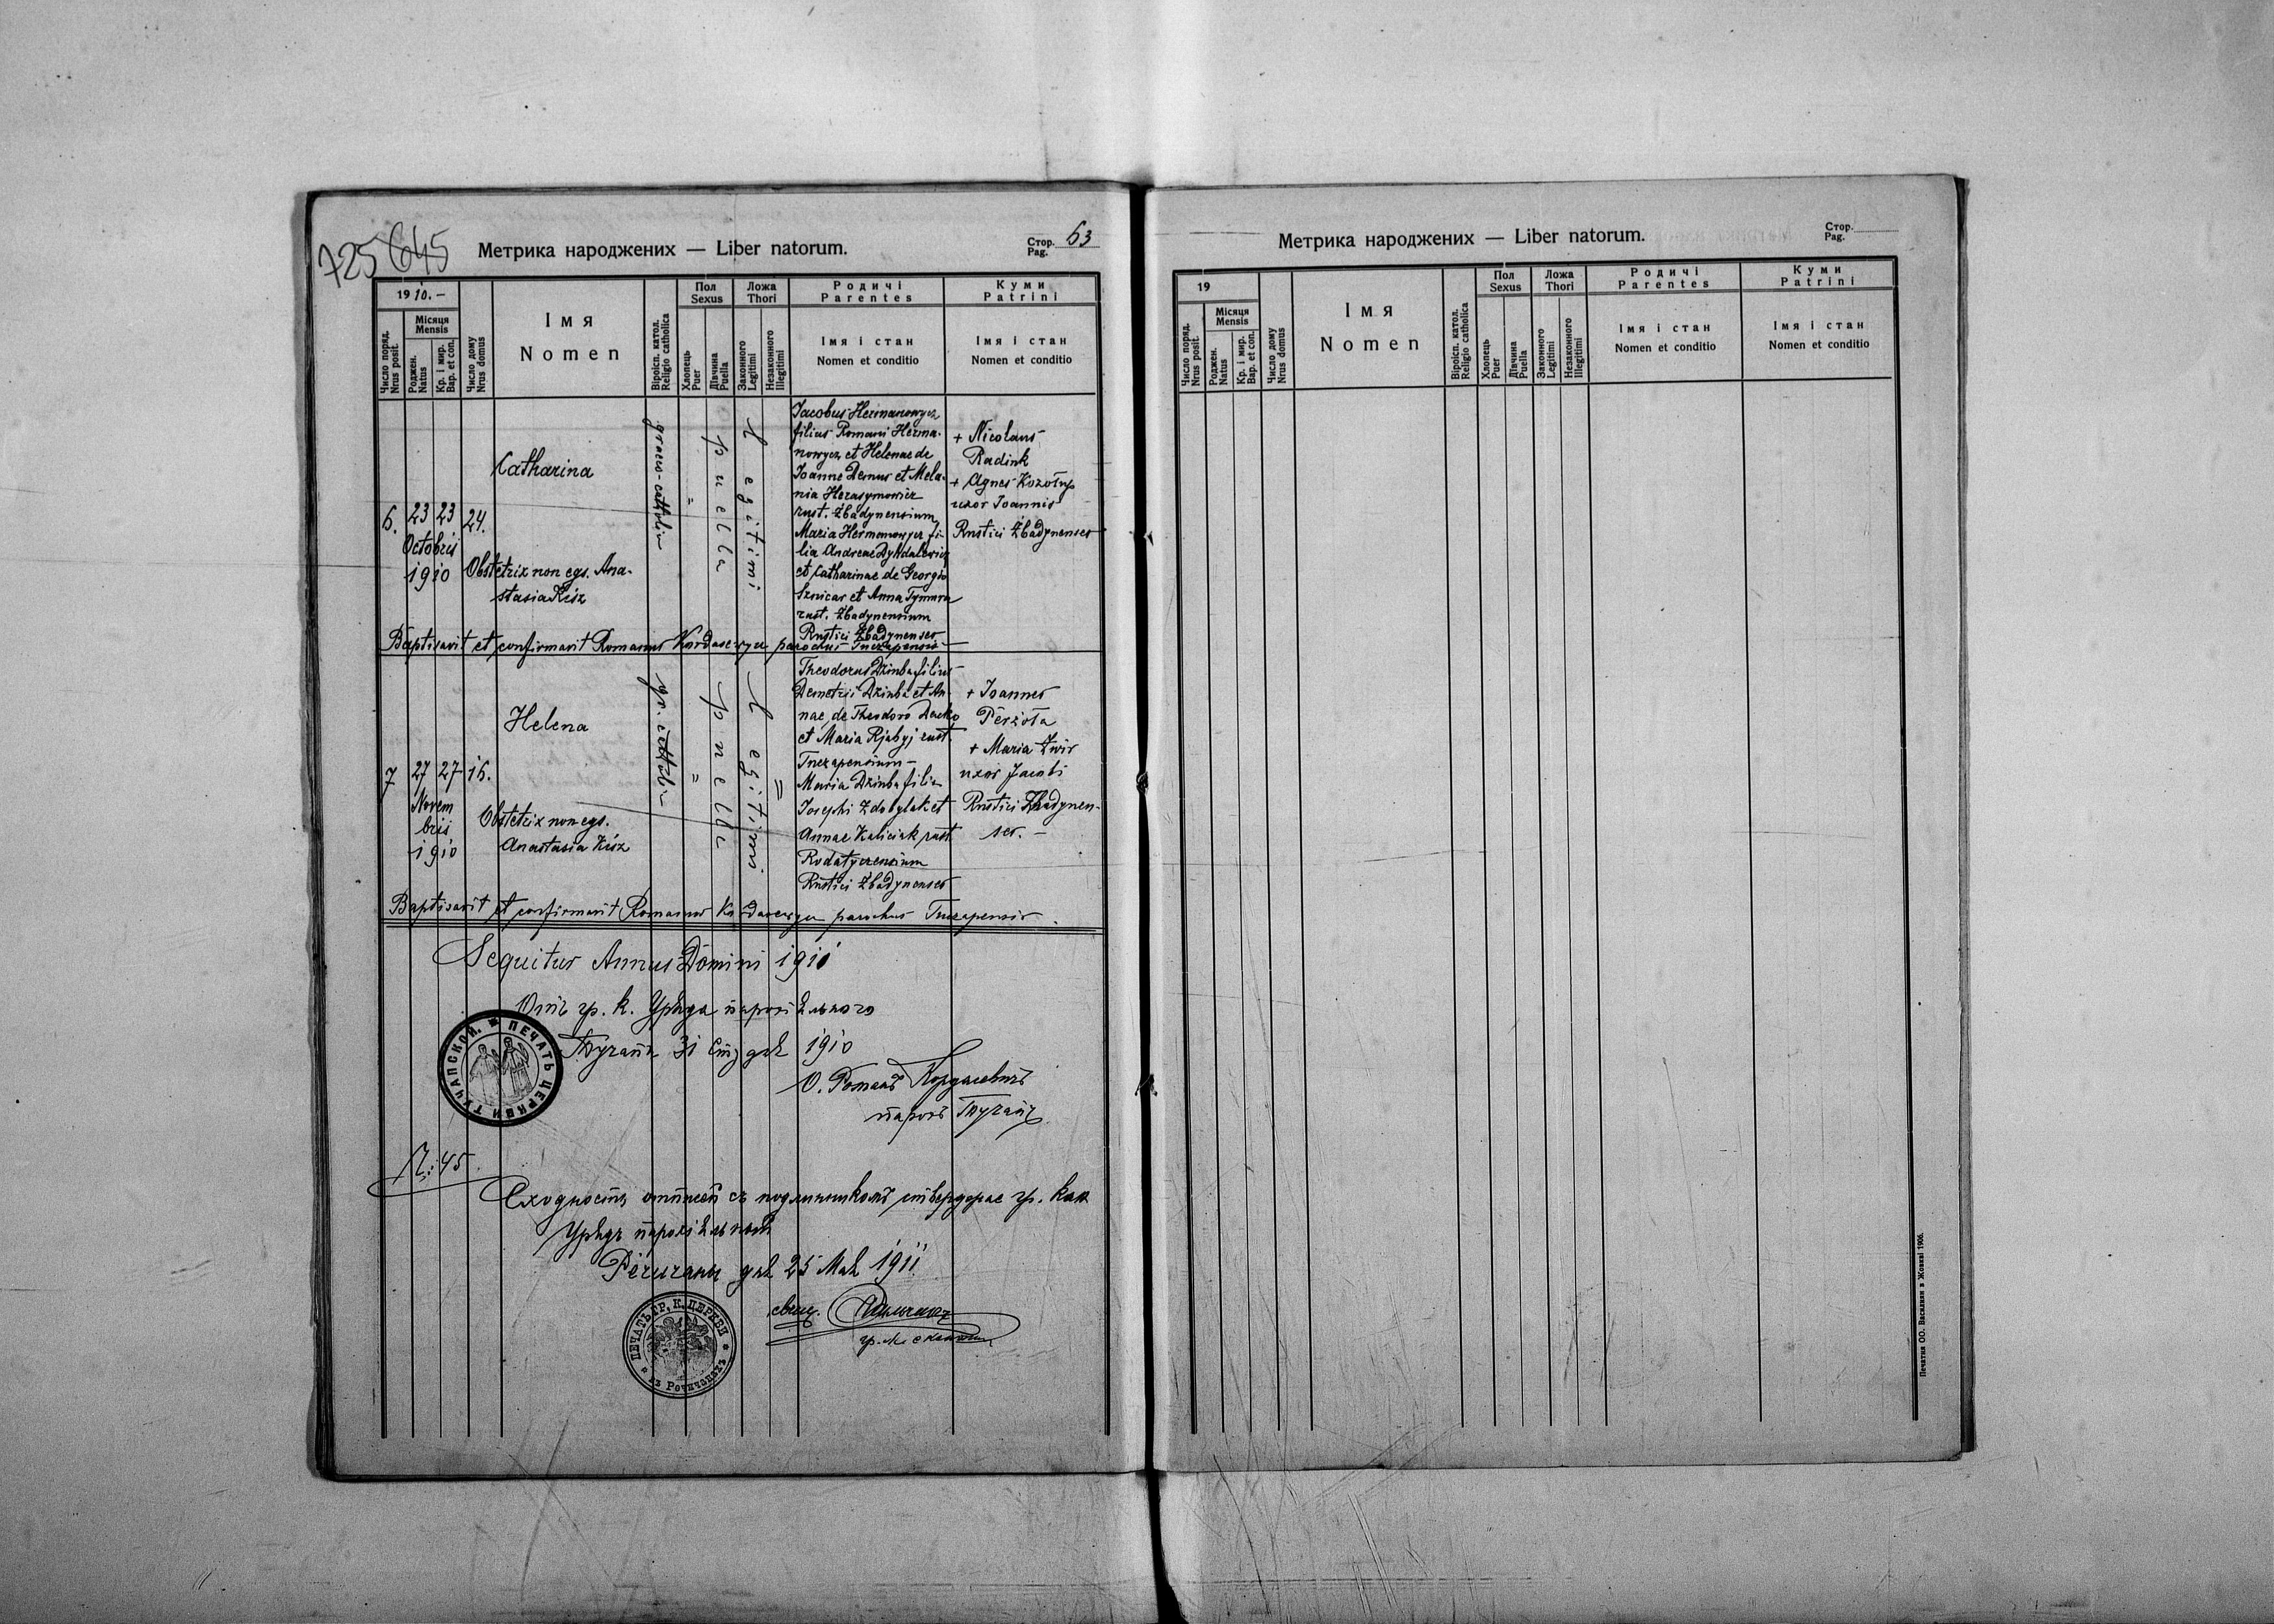 725 645
Метрика народжених — Liber natorum.
Стор. Pag. 63
19 10.-
Число поряд. Nrus posit.
Місяця Mensis
Роджен. Natus
Кр. і мир. Bap. et con.
Число дому Nrus domus
Імя
Nomen
Віроісп. катол. Religio catholica
Пол Sexus
Хлопець Puer
Дівчина Puella
Ложа Thori
Законного Legitimi
Незаконного Illegitimi
Родичі Parentes
Імя і стан
Nomen et conditio
Куми Patrini
Імя і стан
Nomen et conditio
6.
23 23
Octobris
1910
24.
Catharina
Obstetrix non egs. Ana-
stasia Kisz
graeco-catholi-
"
puella
Legitimi
Jacobus Hermanowycz
filius Romani Herma-
nowycz et Helenae de
Joanne Demus et Mela-
nia Herasymowicz
rust. Zbadynensium
Maria Hermanowycz fi-
lia Andreae Dykdalewicz
et Catharinae de Georgio
et Anna
rust. Zbadynensium
Rustici Zbadynenses
+ Nicolaus
Radink
+ Agnes Kozołup
uxor Joannis
Rustici Zbadynenses
Baptisavit et confirmavit Romanus Kordasewycz parochus Tuczapensis
7
27 27
Novem
bris
1910
15.
Helena
Obstetrix non egs.
Anastasia Kisz
gr. catholi-
"
puella
Legitimi
"
Theodorus Dziuba filius
Demetrii Dziuba et An-
nae de Theodoro
et Maria Rjabyj rust.
Tuczapensium -
Maria Dziuba filia
Josephi Zdobylak et
Annae Kaliciak rust.
Rodatyczensium
Rustici Zbadynenses
+ Joannes
Perżoła
+ Maria Żwir
uxor Jacobi
Rustici Zbadynen-
ses. -
Baptisavit et confirmavit Romanus Kordasewycz parochus Tuczapensis.
Sequitur Annus Domini 1911
Отъ гр. к. Уряда парохіяльного
Тучапы 31 Студня 1910
О. Романъ Кордасевичъ
парохъ Тучапъ
ПЕЧАТЬ ЦЕРКВИ ТУЧАПСКОЙ.
Л: 45
Сходность съ подлинникомъ ствердзає гр. кат.
Урядъ парохіяльный
Речичаны дня 25 Мая 1911
свящ.
ПЕЧАТЬ ГР. К. ЦЕРКВИ въ Речичанахъ
Метрика народжених — Liber natorum.
Стор. Pag.
19
Число поряд. Nrus posit.
Місяця Mensis
Роджен. Natus
Кр. і мир. Bap. et con.
Число дому Nrus domus
Імя
Nomen
Віроісп. катол. Religio catholica
Пол Sexus
Хлопець Puer
Дівчина Puella
Ложа Thori
Законного Legitimi
Незаконного Illegitimi
Родичі Parentes
Імя і стан
Nomen et conditio
Куми Patrini
Імя і стан
Nomen et conditio
Печатня ОО. Василиян в Жовкві 1906.